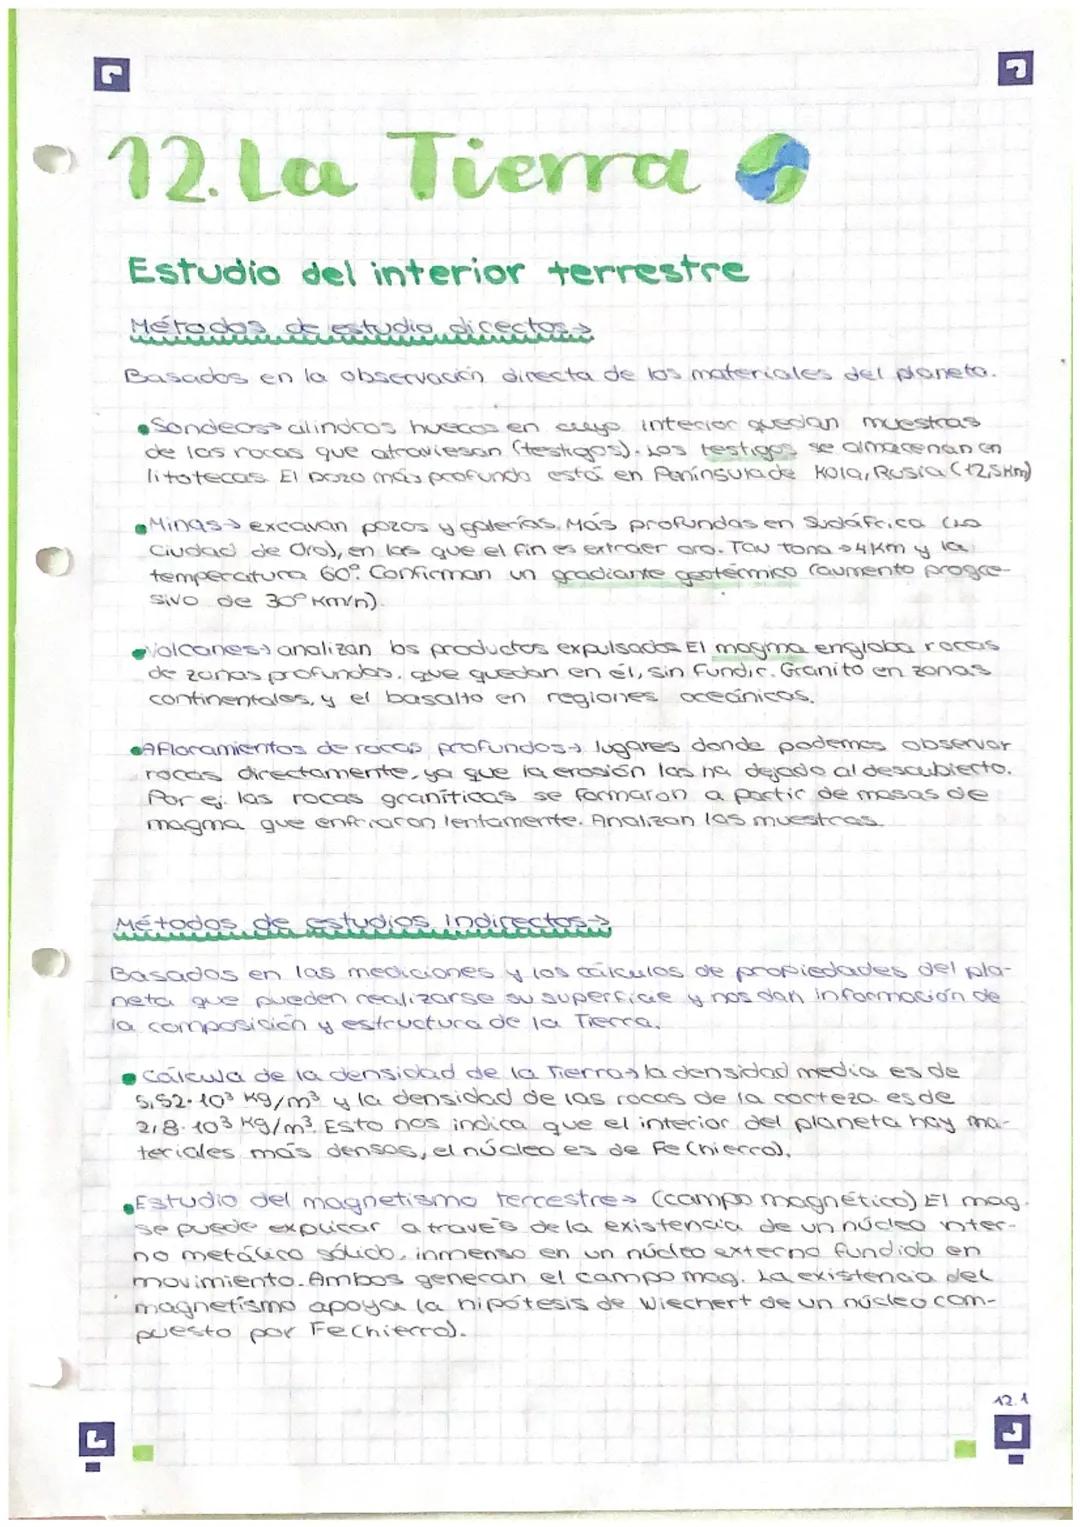 12. La Tierra
Estudio del interior terrestre
Métodos de estudio directos→
Basados en la observación directa de los materiales del planeta.
•Sondeos→ cilindros huecos en cuyo interior quedan muestras
de las rocas que atraviesan (testigos). Los testigos se almacenan en
litotecas. El pozo más profundo está en Península de Kola, Rusia (12,5Km)
•Minas→ excavan pozos y galerías. Más profundas en Sudáfrica (La
Ciudad de Oro), en las que el fin es extraer oro. Tau tona →4Km y la
temperatura 60º. Confirman un gradiante geotérmico (aumento progre-
sivo de 30º Km/n).
•Volcanes→ analizan los productos expulsados. El magma engloba rocas
de zonas profundas, que quedan en él, sin fundir. Granito en zonas
continentales, y el basalto en regiones oceánicas.
•Afloramientos de rocas profundos→ lugares donde podemos observar
rocas directamente, ya que la erosión las ha dejado al descubierto.
Por ej. las rocas graníticas se formaron a partir de masas de
magma que enfriaron lentamente. Analizan las muestras.
Métodos de estudios Indirectos→
Basados en las mediciones y los cálculos de propiedades del pla-
neta que pueden realizarse su superficie y nos dan información de
la composición y estructura de la Tierra.
•Cálcula de la densidad de la Tierra→ la densidad media es de
5,52·10³ Kg/m³ y la densidad de las rocas de la corteza es de
2,8·10³ Kg/m³. Esto nos indica que el interior del planeta hay ma-
teriales más densos, el núcleo es de Fe (hierro).
•Estudio del magnetismo terrestre→ (campo magnético) El mag.
se puede explicar a través de la existencia de un núcleo inter-
no metálico sólido, inmenso en un núcleo externo fundido en
movimiento. Ambos generan el campo mag. La existencia del
magnetismo apoya la hipótesis de Wiechert de un núcleo com-
puesto por Fe (hierro).
12.1